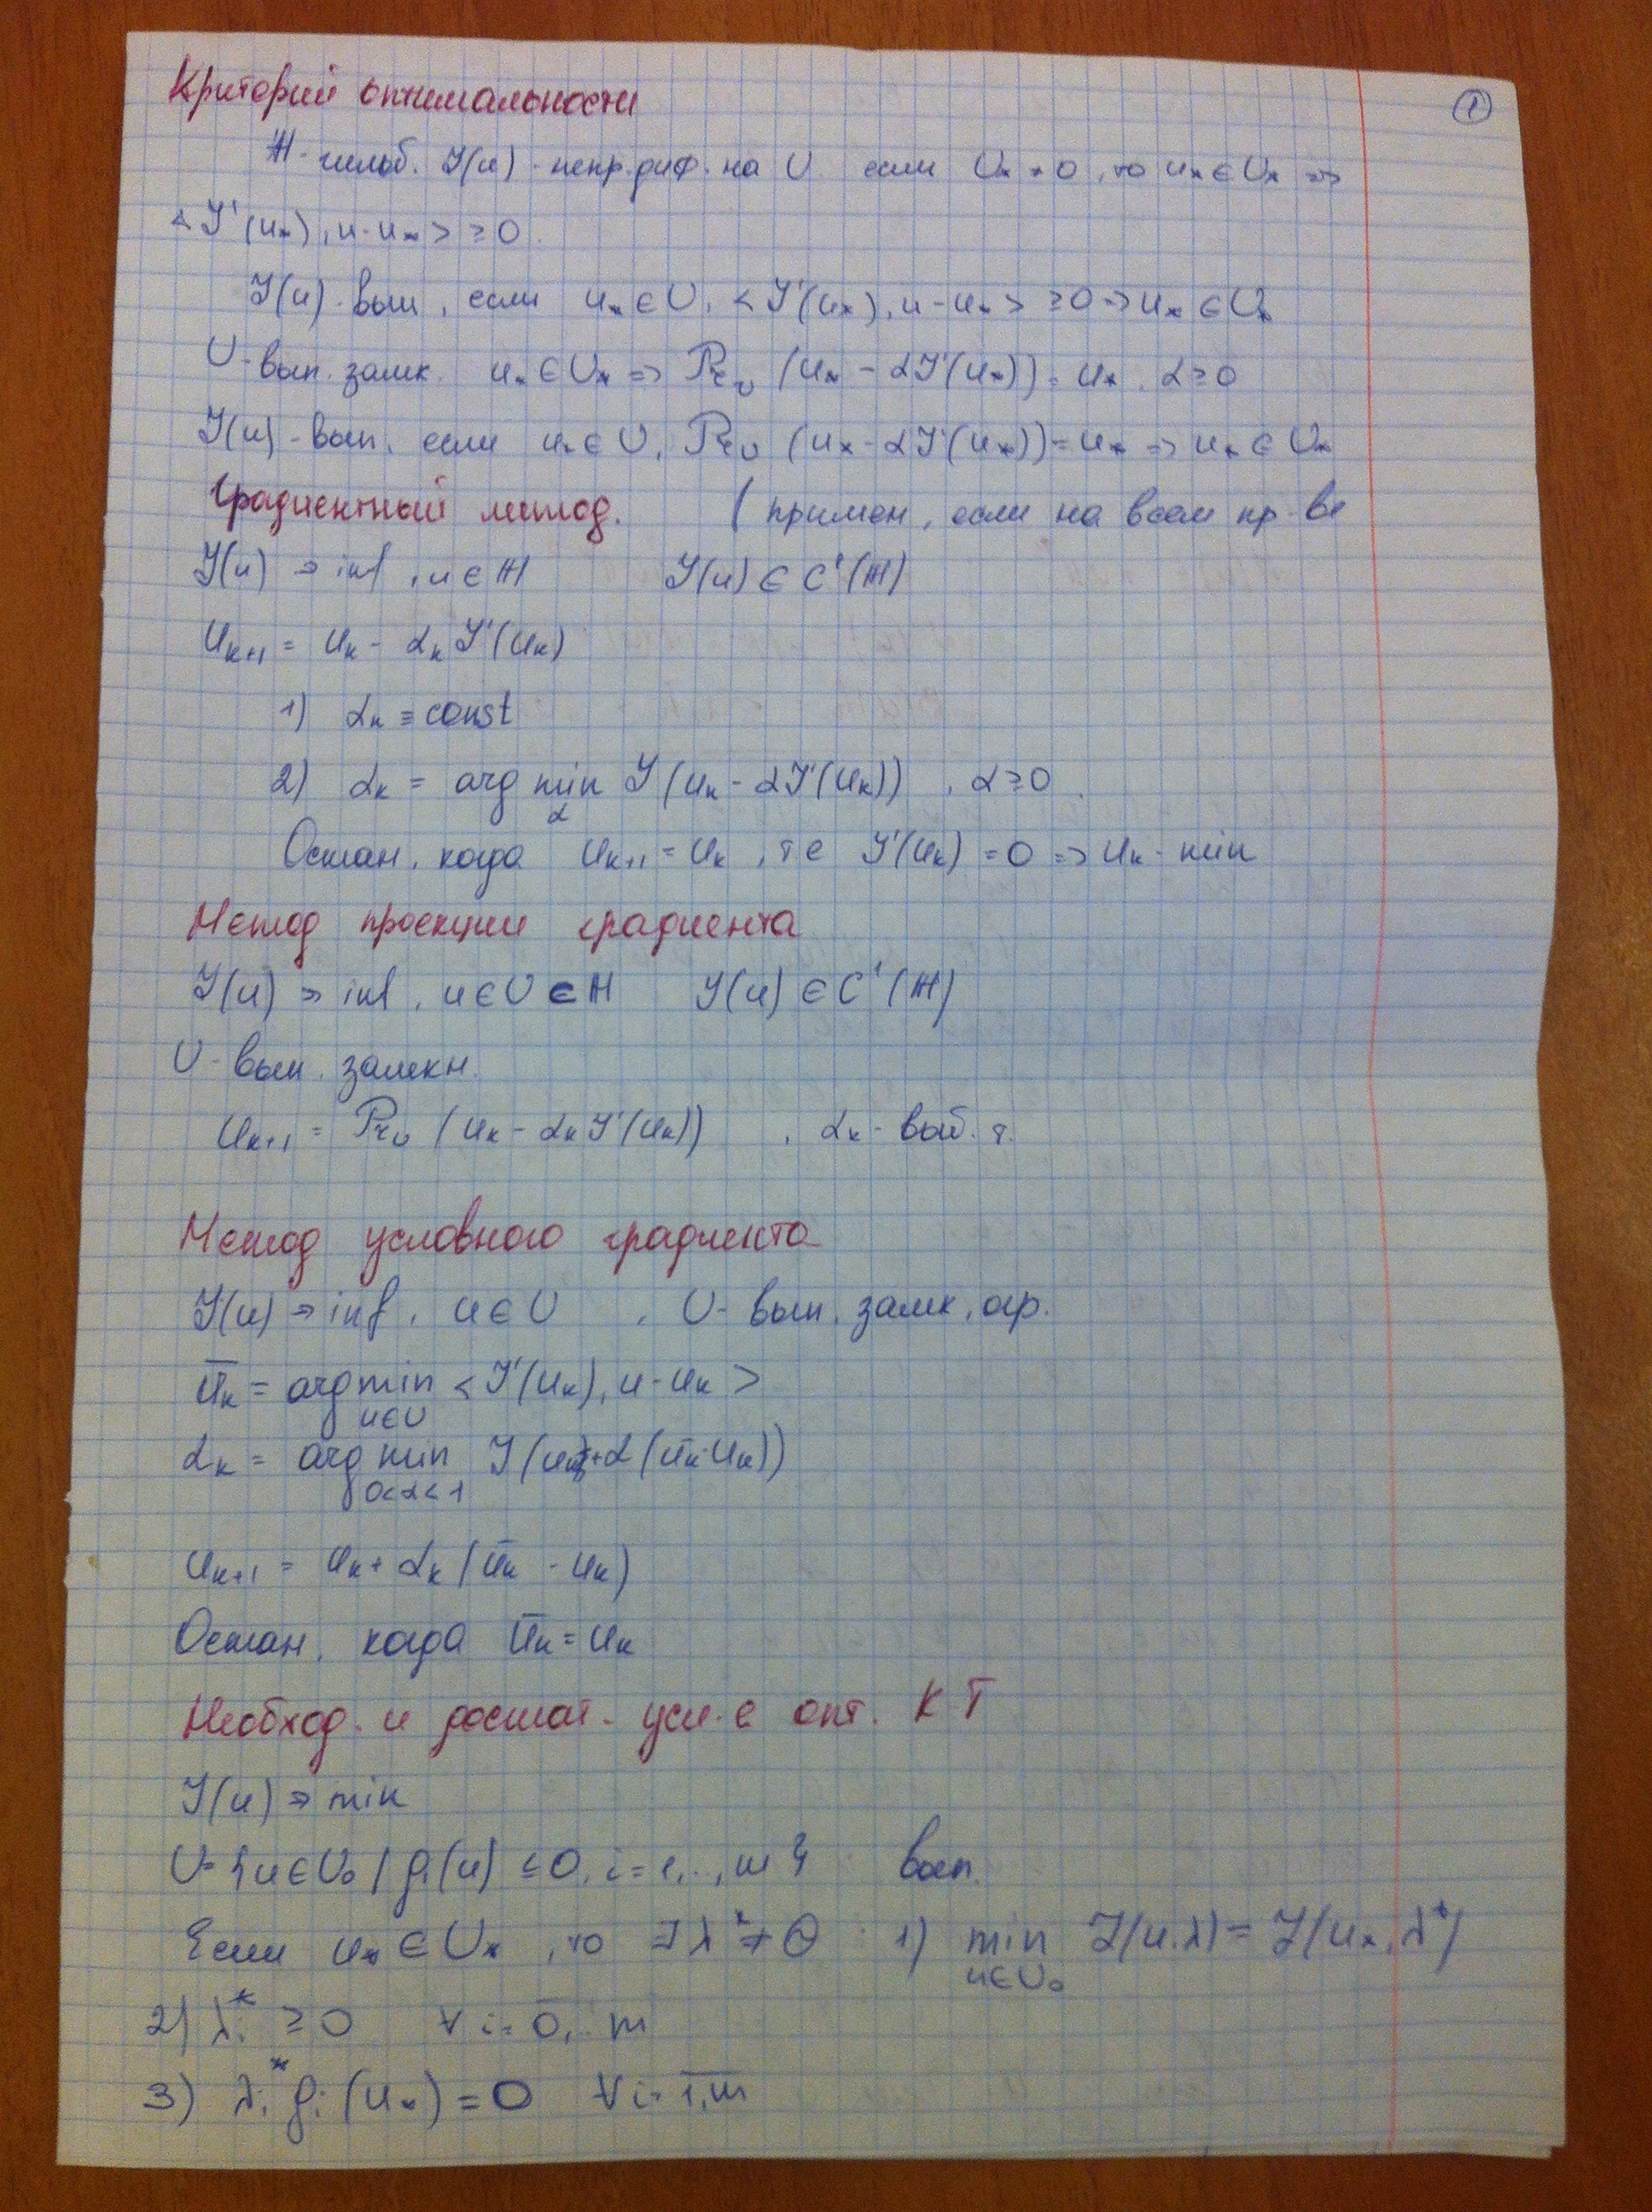 Критерий оптимальности
①
ℍ - гильб. J(u) - непр. диф. на U если U* ≠ 0, то u* ∈ U* =>
< J'(u*), u - u* > ≥ 0.
J(u) - вып, если u* ∈ U, < J'(u*), u - u* > ≥ 0 => u* ∈ U*
U - вып. замк. u* ∈ U* => Pr_U (u* - αJ'(u*)) = u*, α ≥ 0
J(u) - вып, если u* ∈ U, Pr_U (u* - αJ'(u*)) = u* => u* ∈ U*
Градиентный метод. ( примен, если на всем пр-ве
J(u) → inf, u ∈ ℍ J(u) ∈ C'(ℍ)
u_{k+1} = u_k - α_k J'(u_k)
1) α_k ≡ const
2) α_k = arg min_α J(u_k - αJ'(u_k)), α ≥ 0.
Остан, когда u_{k+1} = u_k, т е J'(u_k) = 0 => u_k - min
Метод проекции градиента
J(u) → inf, u ∈ U ∈ ℍ J(u) ∈ C'(ℍ)
U - вып. замкн.
u_{k+1} = Pr_U (u_k - α_k J'(u_k)), α_k -
Метод условного градиента
J(u) → inf, u ∈ U, U - вып, замк, огр.
ū_k = argmin_{u∈U} < J'(u_k), u - u_k >
α_k = arg min_{0<α<1} J(u_k + α(ū_k - u_k))
u_{k+1} = u_k + α_k (ū_k - u_k)
Остан, когда ū_k = u_k
Необход. и достат. усл-е опт. К Т
J(u) → min
U = {u ∈ U_0 | g_i(u) ≤ 0, i = 1,..,m} вып.
Если u* ∈ U*, то ∃ λ* ≠ Θ 1) min_{u∈U_0} L(u, λ) = L(u*, λ*)
2) λ_i* ≥ 0 ∀ i = 0,..m
3) λ_i* g_i (u*) = 0 ∀ i = 1,m